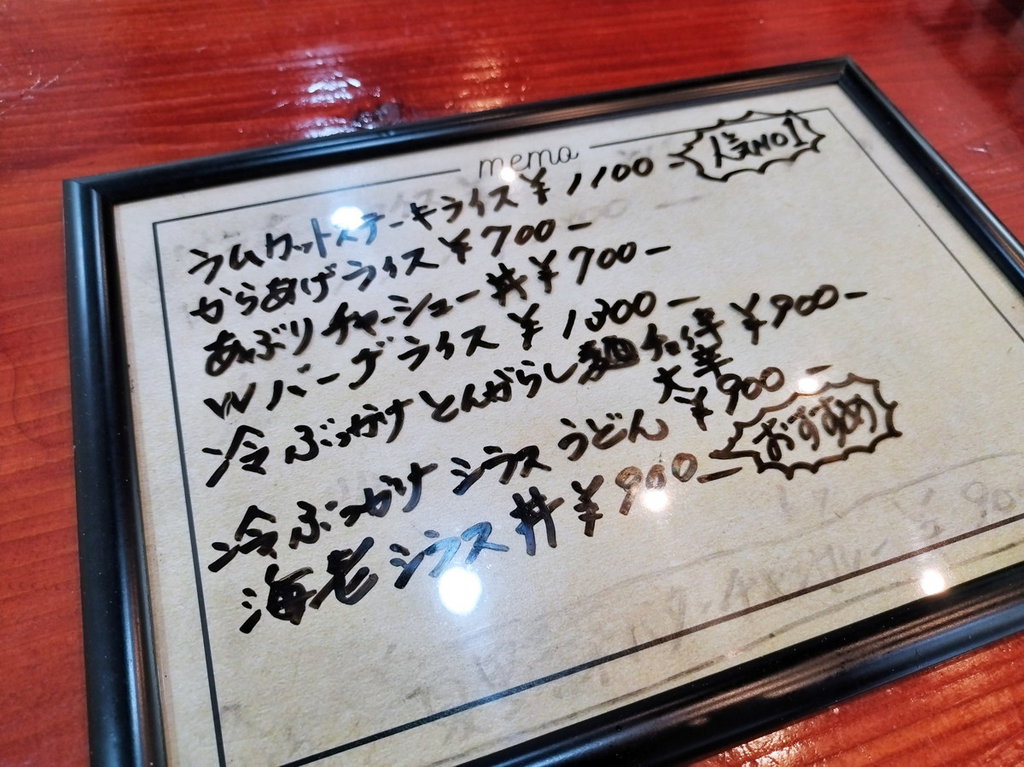 memo
ラムカットステーキライス ¥1100- 人気NO1
からあげライス ¥700-
あぶりチャーシュー丼 ¥700-
Wバーグライス ¥1300-
冷ぶっかけとんがらし麺 ¥900-
大辛
冷ぶっかけシラスうどん ¥900-
海老シラス丼 ¥900- おすすめ